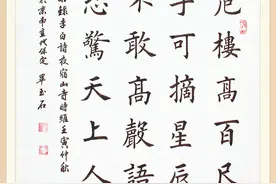 危樓高百尺
手可摘星辰
不敢高聲語
恐驚天上人
錄李白詩夜宿山寺時維壬寅仲秋
於京保定玉石